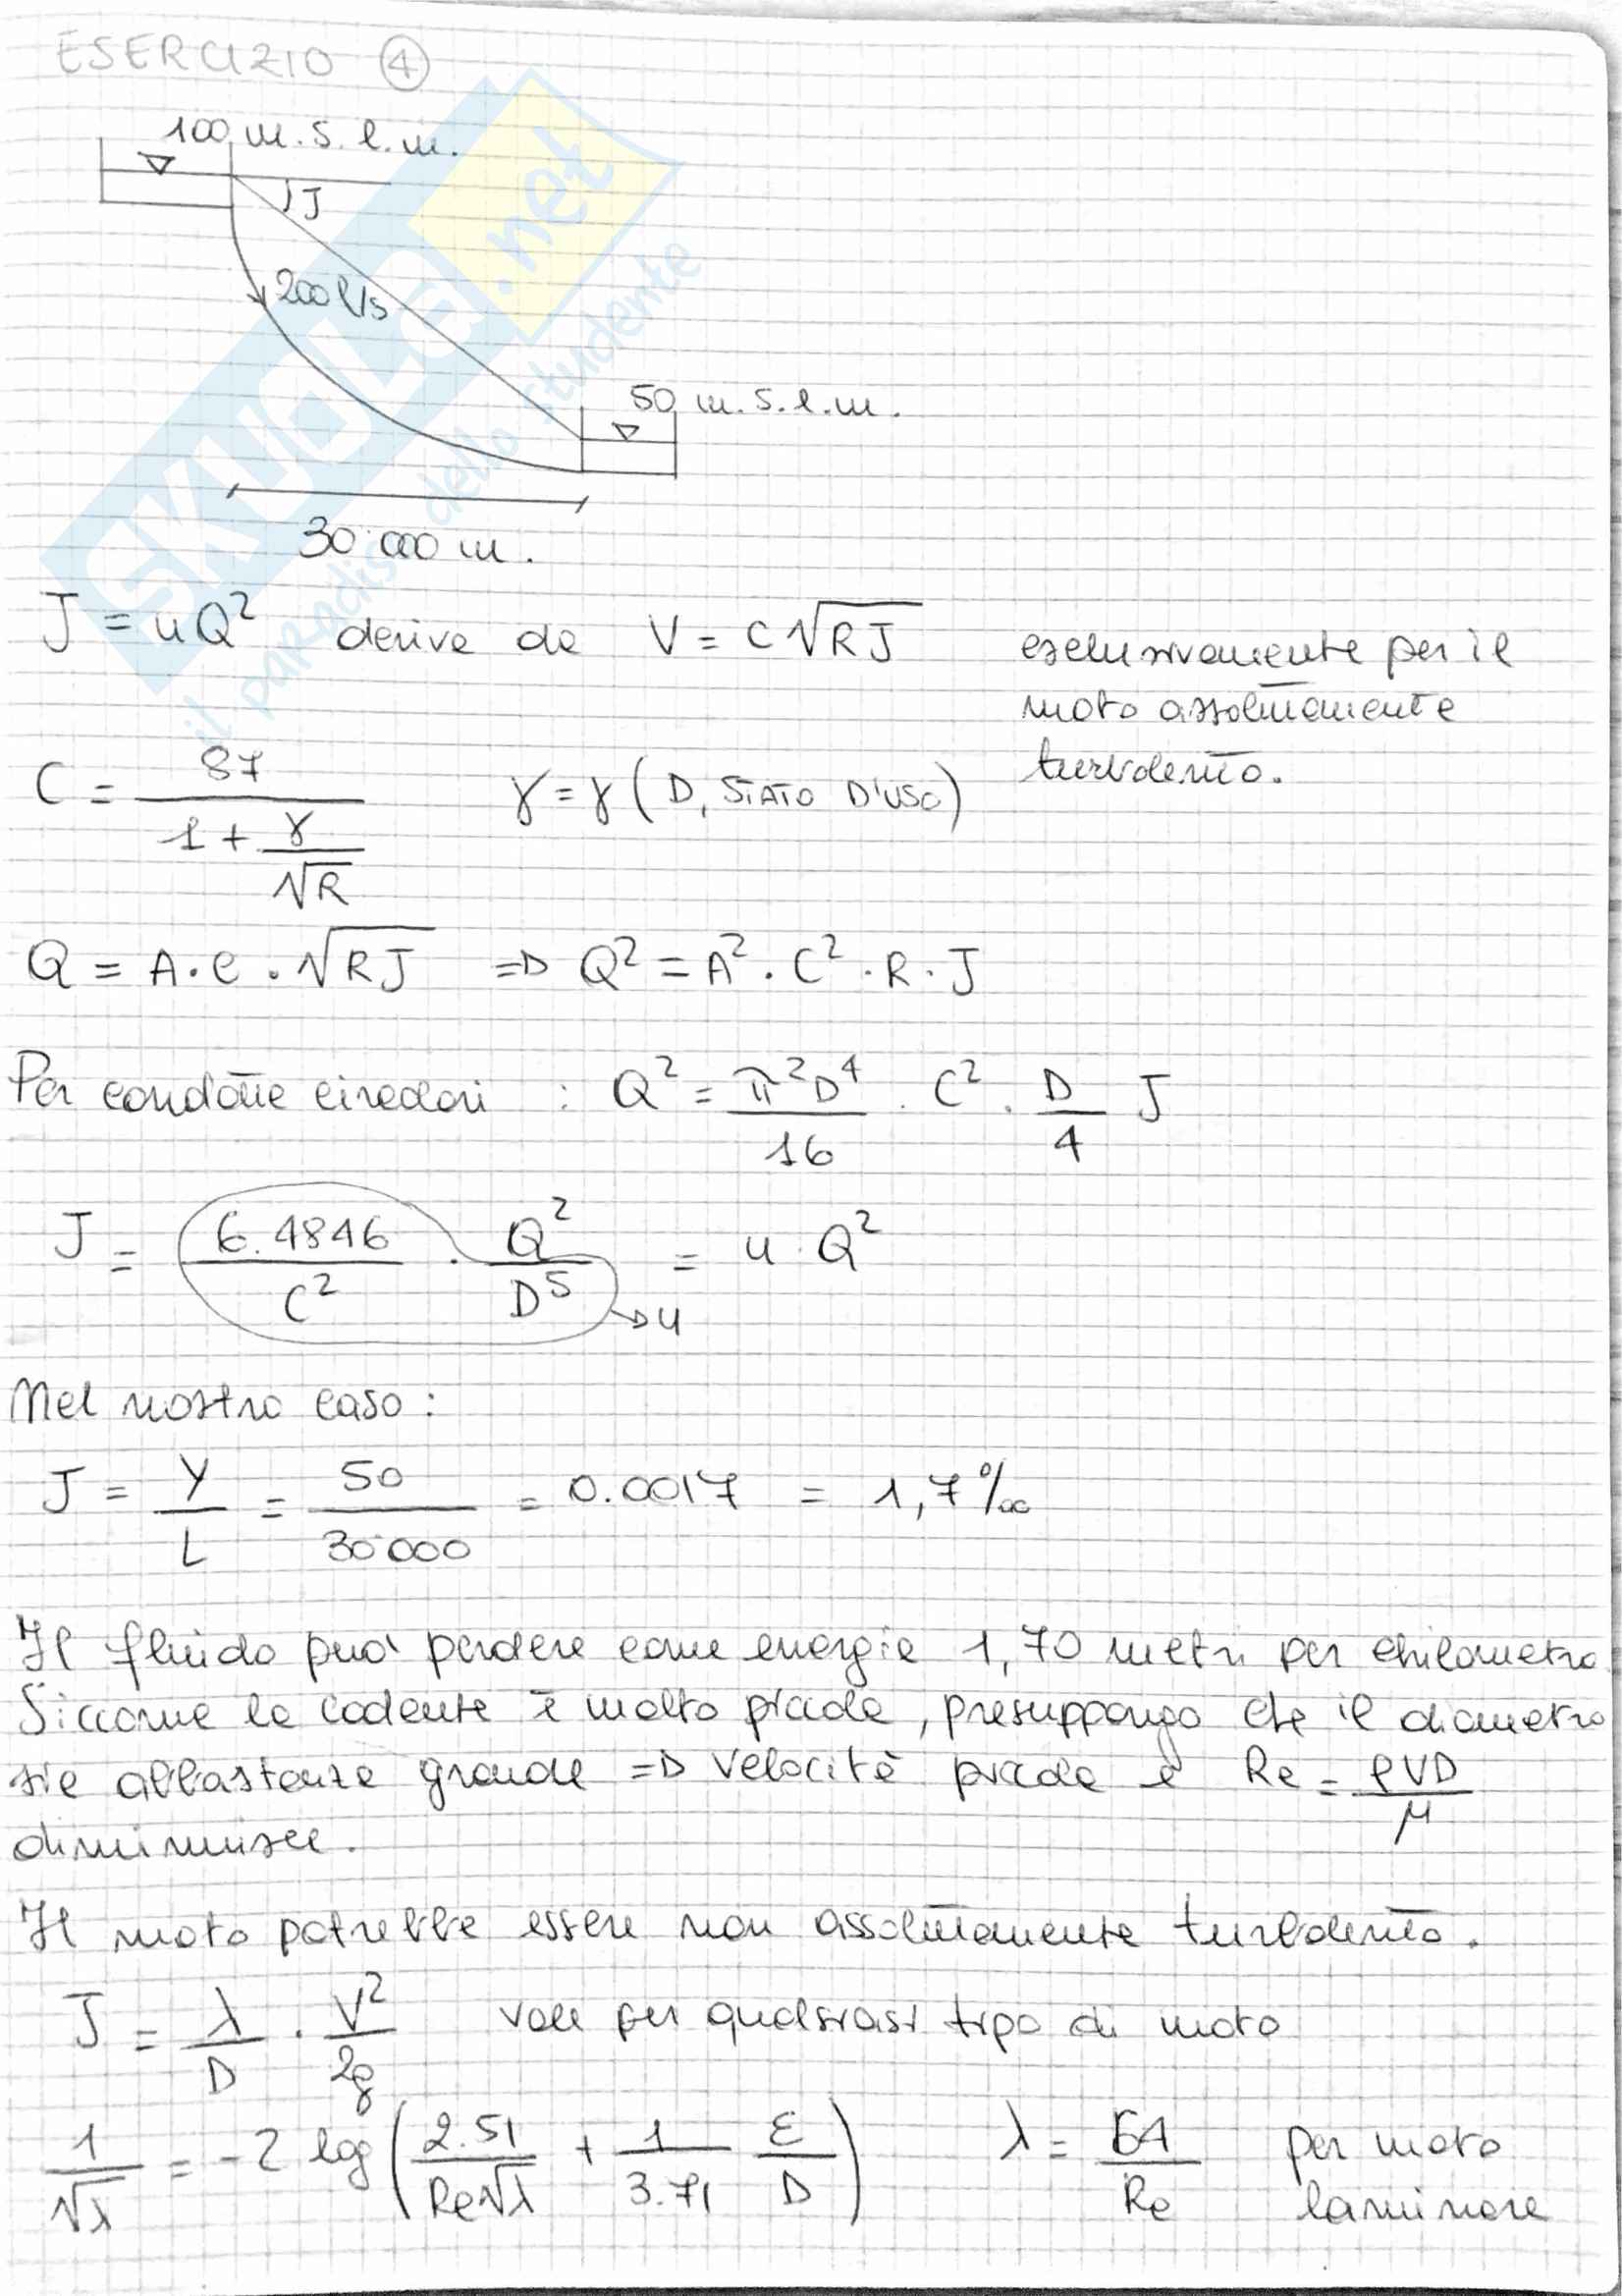 ESERCIZIO 4
100 m.s.l.m.
J
200 l/s
50 m.s.l.m.
30'000 m.
SKUOLA.net
il paradiso dello studente
J = uQ² deriva da V = C√RJ esclusivamente per il
moto assolutamente
turbolento.
C = 87 / (1 + γ/√R) γ = γ (D, STATO D'USO)
Q = A·C·√RJ => Q² = A²·C²·R·J
Per condotte circolari : Q² = π²D⁴/16 · C² · D/4 J
J = 6.4846/C² · Q²/D⁵ = u·Q²
→ u
Nel nostro caso :
J = Y/L = 50/30'000 = 0.0017 = 1,7‰
Il fluido può perdere come energia 1,70 metri per chilometro
Siccome la cadente è molto piccola, presuppongo che il diametro
sia abbastanza grande => velocità piccola e Re = ρVD/μ
diminuisce.
Il moto potrebbe essere non assolutamente turbolento.
J = λ/D · V²/2g vale per qualsiasi tipo di moto
1/√λ = -2 log (2.51/Re√λ + 1/3.71 ε/D) λ = 64/Re per moto
laminare